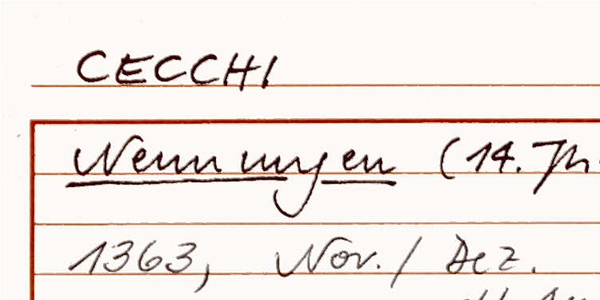 CECCHI
Nennungen (14. Jh.
1363, Nov. / Dez.